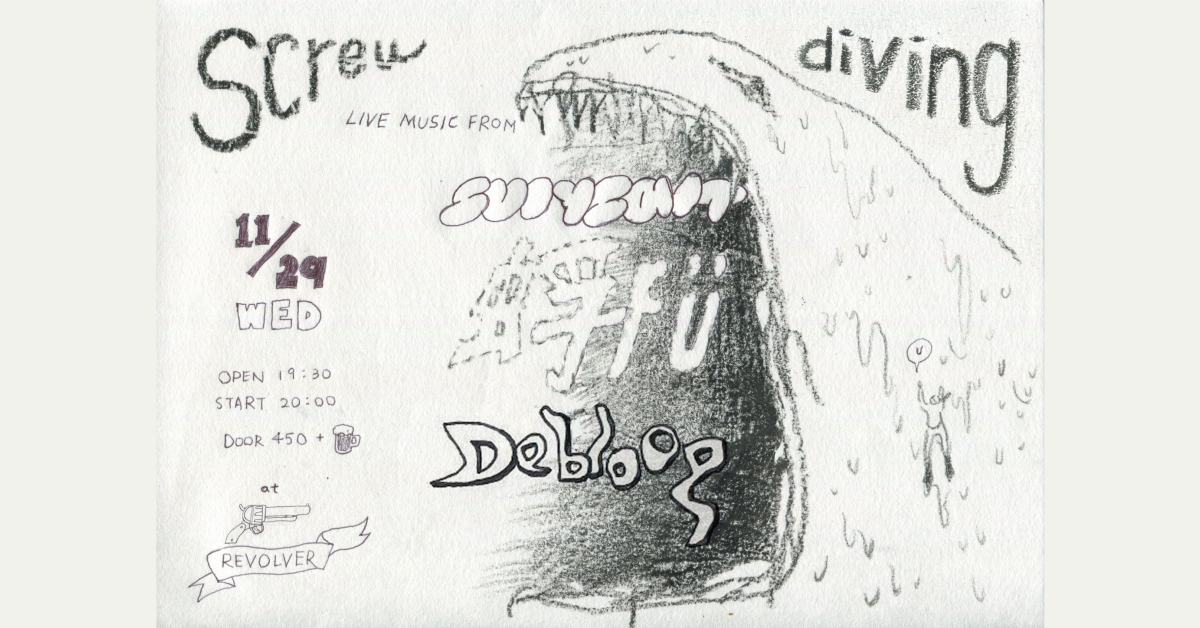 Screw
diving
LIVE MUSIC FROM
11/29
WED
OPEN 19:30
START 20:00
DOOR 450 +
at
REVOLVER
Debloop